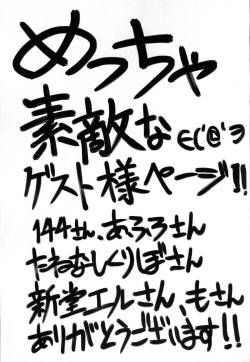 めっちゃ
素敵な
ゲスト様ページ!!
144さん、あふろさん
たねなしくりぼさん
新堂エルさん、もさん
ありがとうございます!!